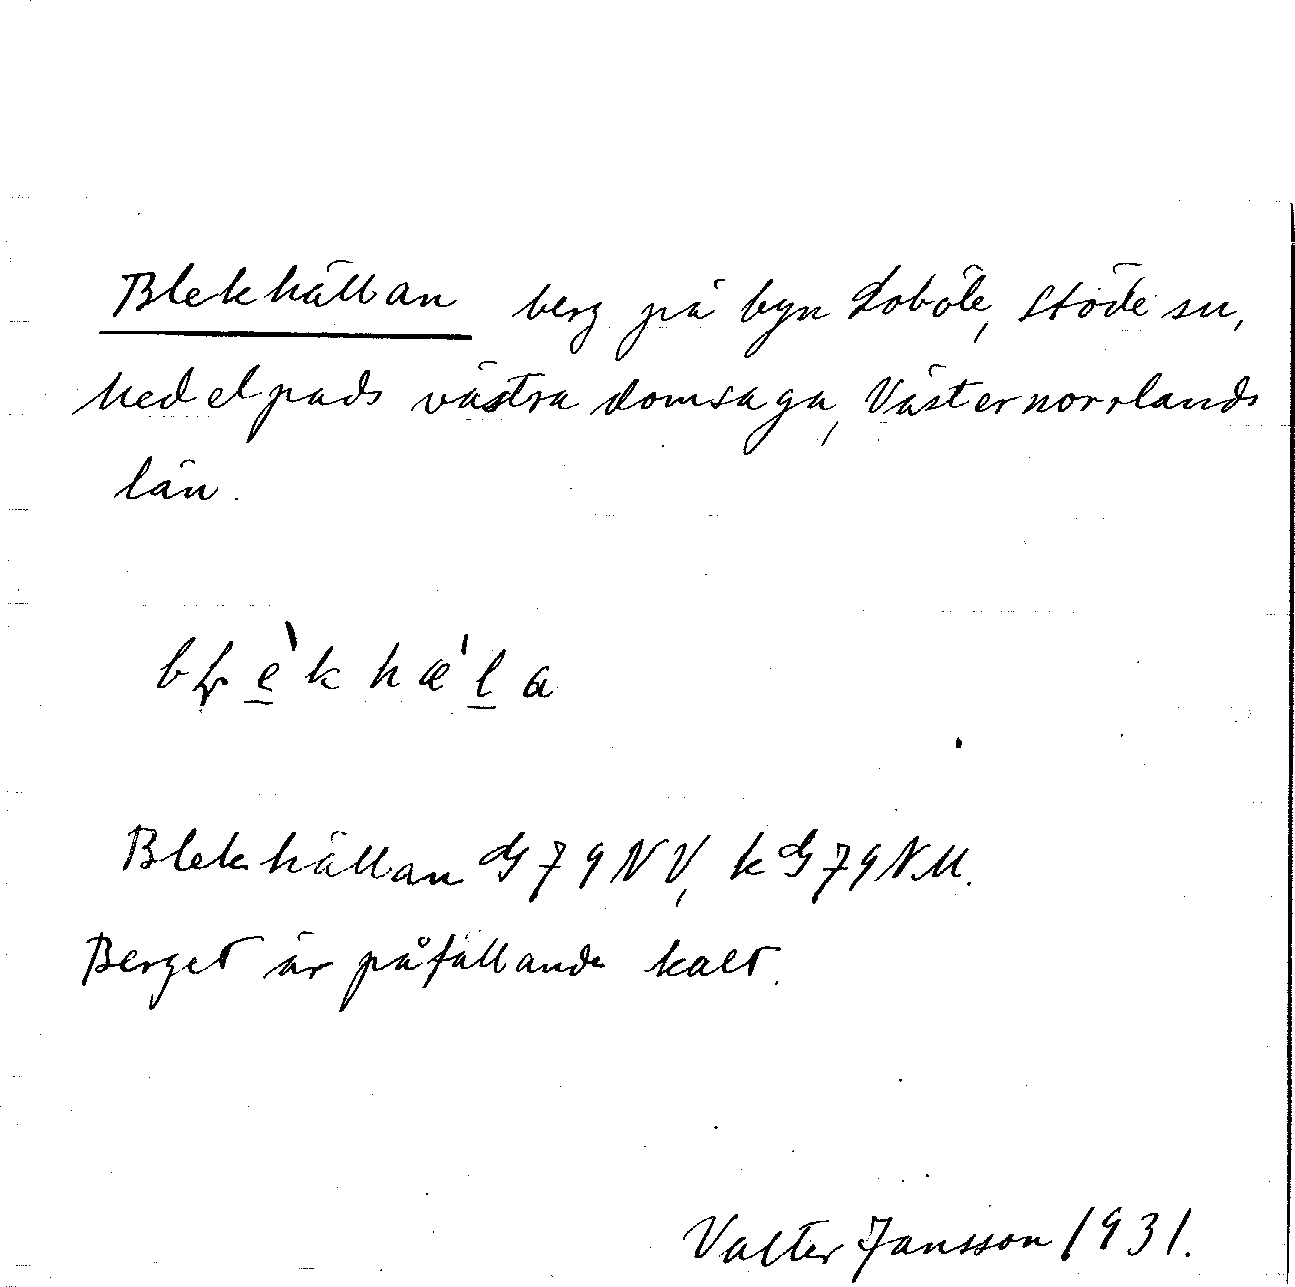 Blekhällan berg på byn Loböle, Stöde sn,
Medelpads västra domsaga, Västernorrlands
län.
Blekhällan G79NV, kG79NM.
Berget är påfallande kalt.
Valter Jansson 1931.